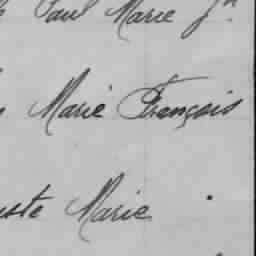 Paul Marie Jn
Marie François
uste Marie